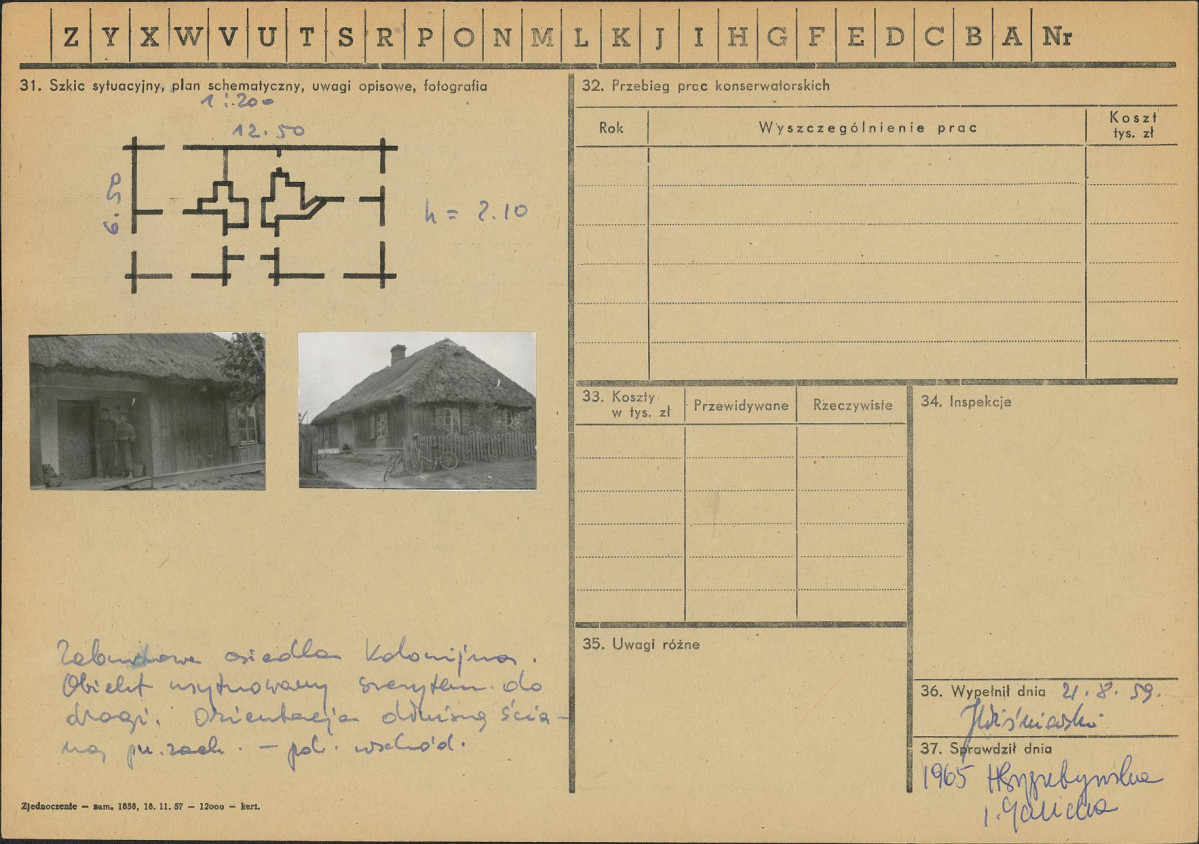 Z Y X W V U T S R P O N M L K J I H G F E D C B A Nr
31. Szkic sytuacyjny, plan schematyczny, uwagi opisowe, fotografia
1:200
12.50
6.50
h = 2.10
Zabudowa osiedla Kolonijna.
Obiekt usytuowany szczytem do
drogi. Orientacja dłuższą ścia-
ną pn. zach. – poł. wschód.
Zjednoczenie — zam. 1858, 16. 11. 57 — 12000 — kart.
32. Przebieg prac konserwatorskich
Rok
Wyszczególnienie prac
Koszt
tys. zł
33. Koszty
w tys. zł
Przewidywane
Rzeczywiste
34. Inspekcje
35. Uwagi różne
36. Wypełnił dnia 21.8.59.
37. Sprawdził dnia
1965